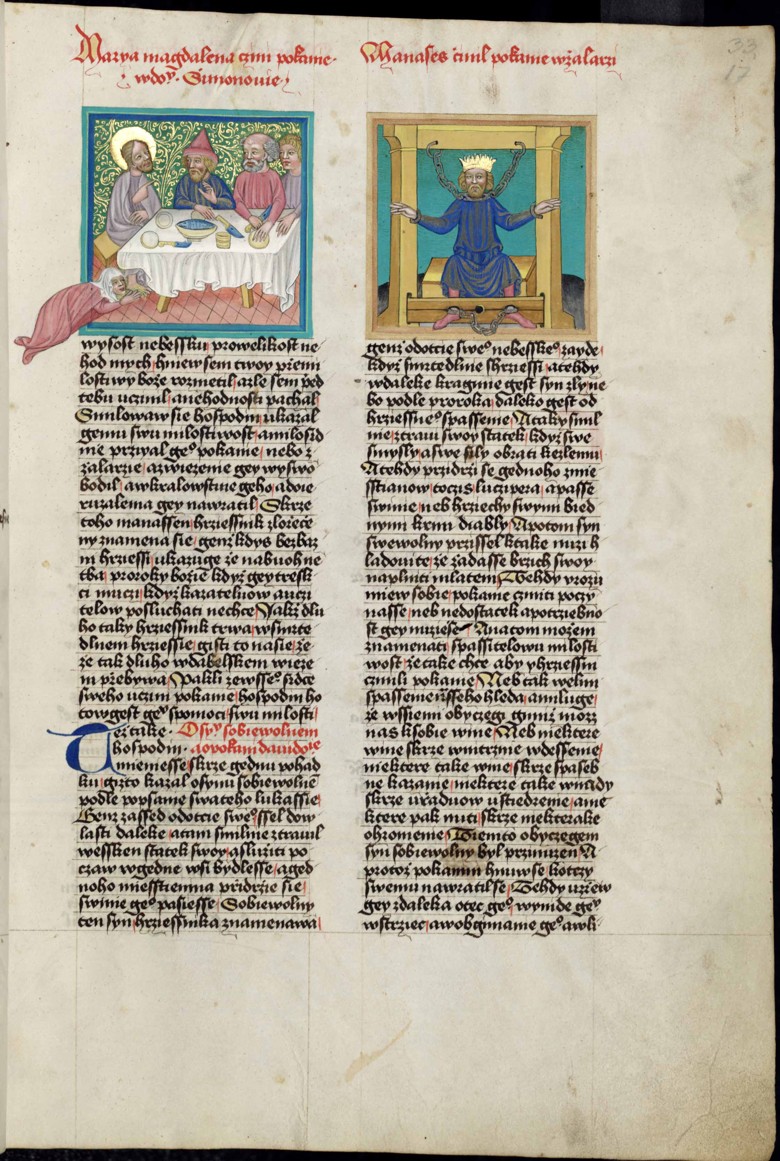 Marya magdalena czini pokanie
w domu Simonowie
Manases cinil pokanie w zalarzi
33
17
wysost nebessku prowelikost ne
hod mych hniew sem twoy přemi
losti wy boze rozmetil a zle sem před
tebu uczinil a nehodnosti pachal
Smilowaw sie hospodin ukazal
gemu swu milostiwost a milosrd
nie przyal geho pokanie nebo z
zalarzie a z wiezenie gey wyswo
bodil a w kralowstwie geho a do ie
ruzalema gey nawratil Skrze
toho manassen hrziessnik zlorzeče
ny znamena sie genz kdys bez baz
ni hrziessi ukazuge ze na buoh ne
tba proroky bozie kdyz gey tresk
ci muczi kdyz kazateluow a uczi
telow posluchati nechce Jakz dlu
ho taky hrziessnik trwa w smrte
dlnem hrziessie gisti to na sie ze
ze tak dluho w dabelskem wieze
ni przebywa Pakli ze wsseho srdce
sweho uczini pokanie hospodin ho
tow gest gemu spomoci swu milosti
Tez take O synu sobiewolnem
hospodin a o pokani dawidowie
niemesse skrze gednu pohad
ku gizto kazal o synu sobiewolnem
podle popsanie swateho lukassie
Genz zassed od otcie sweho ssel do w
lasti daleke a tam smilnie ztrawil
wessken statek swoy a sluziti po
czaw w gedne wsi bydlesse a ged
noho miesstienina přidrzie sie
swinie geho pasiesse Sobiewolny
ten syn hrziessnika znamenawa
genz od otcie sweho nebeskeho zayde
kdyz smrtedlnie shrziessi a tehdy
w daleke kraginie gest syn zly ne
bo podle proroka daleko gest od
hrziessneho spassenie A taky smil
nie ztrawi swoy statek kdyz swe
smysly a swe sily obrati ke zlemu
A tehdy przidrzi se gednoho mie
sstianow tocziz lucipera a passe
swinie neb hrziechy swymi bied
nymi krmi diably A potom syn
swewolny przissel k take nuzi h
ladowite ze zadasse brzich swoy
naplniti mlatem Tehdy w rozu
miew sobie pokanie cziniti poczy
nasse neb nedostatek a potrziebno
st gey nuziese A na tom mozem
znamenati spassitelowu milosti
wost ze take chce aby y hrziessni
czinili pokanie Neb tak welmi
spassenie nasseho hleda a miluge
ze wssiem obyczegi gimiz moz
nas k sobie wine Neb niektere
wine skrze wnitrznie wdessenie
niektere take wine skrze spaseb
ne kazanie niektere take winidy
skrze uraduow ustiedrenie a nie
ktere pak nuti skrze niekterake
ohromenie Tiemto obyczegem
syn sobiewolny byl przinucen A
protoz pokaním hnuw se k otczy
swemu nawratil se Tehdy uzrew
gey zdaleka otec geho wynide gemu
wstrziec a w obgimanie geho a w li